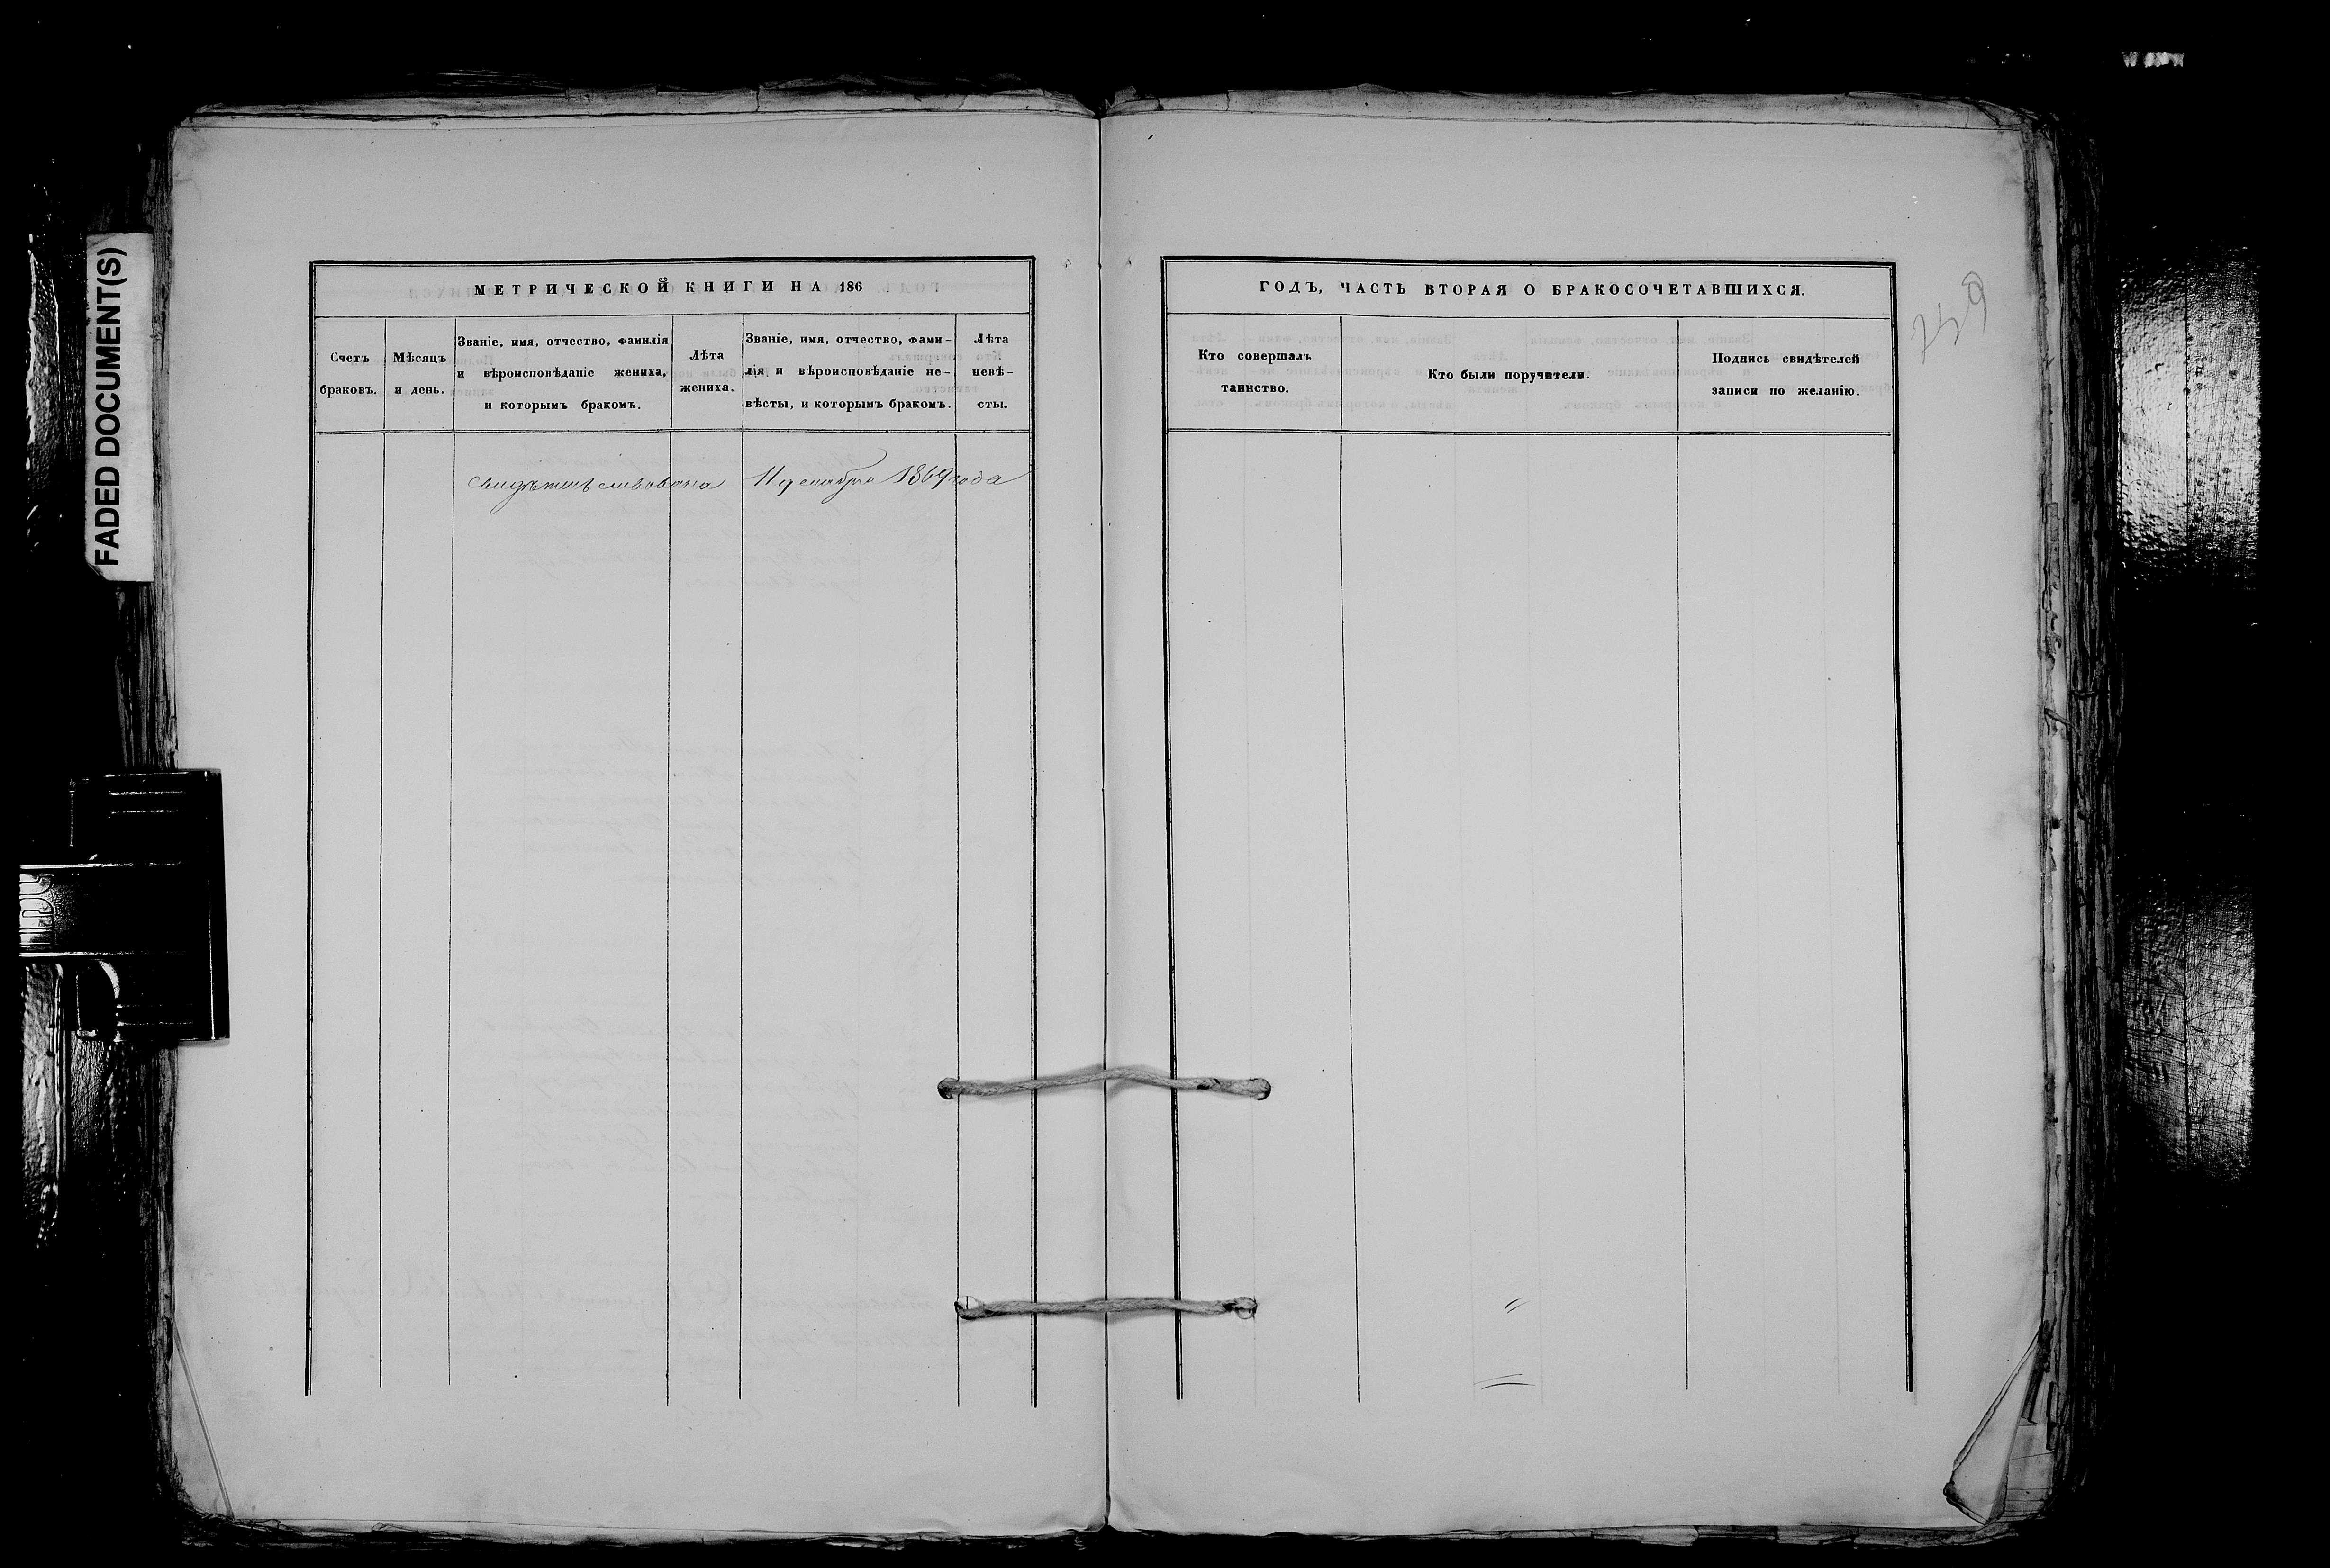 FADED DOCUMENT(S)
МЕТРИЧЕСКОЙ КНИГИ НА 186
Счетъ браковъ.
Мѣсяцъ и день.
Званіе, имя, отчество, фамилія
и вѣроисповѣданіе жениха,
и которымъ бракомъ.
Лѣта
жениха.
Званіе, имя, отчество, фами-
лія и вѣроисповѣданіе не-
вѣсты, и которымъ бракомъ.
Лѣта
невѣ-
сты.
свидѣтельствована 11 декабря 1869 года
ГОДЪ, ЧАСТЬ ВТОРАЯ О БРАКОСОЧЕТАВШИХСЯ.
Кто совершалъ
таинство.
Кто были поручители.
Подпись свидѣтелей
записи по желанію.
259